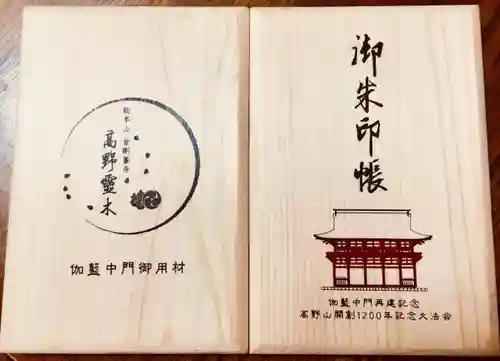 御朱印帳
伽藍中門再建記念
高野山開創1200年記念大法会
総本山金剛峯寺
高野霊木
伽藍中門御用材